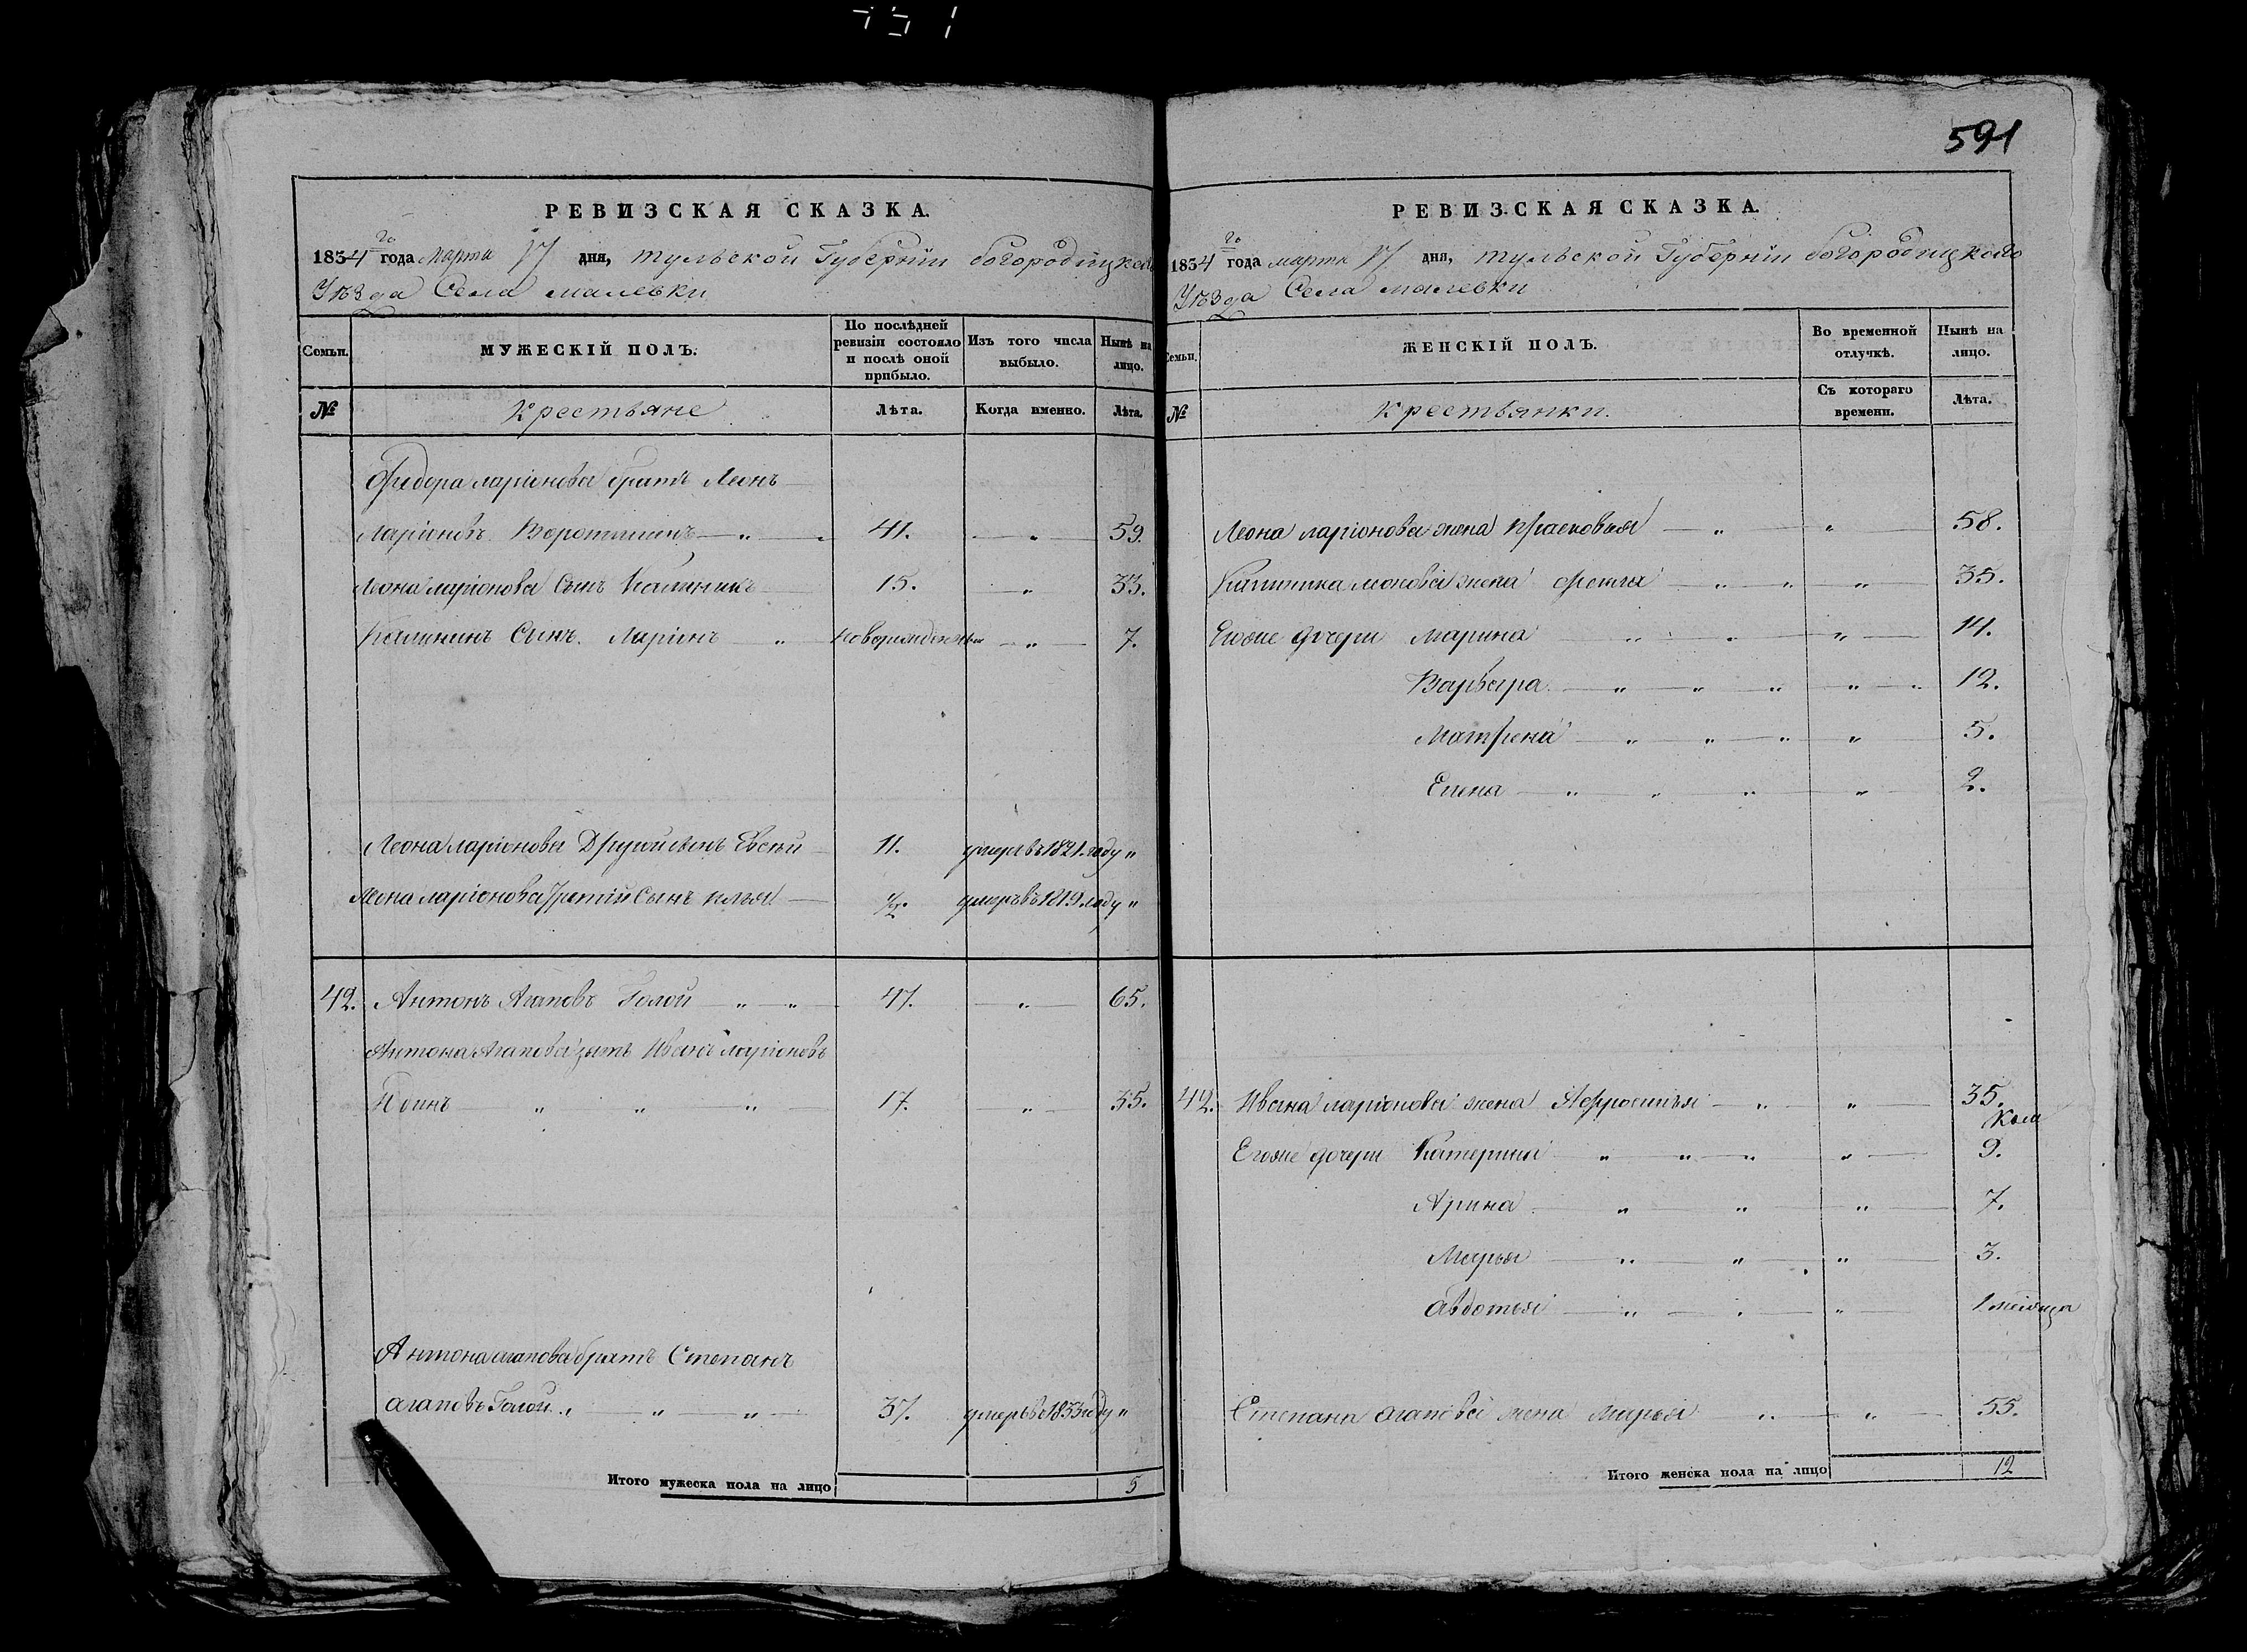 591
РЕВИЗСКАЯ СКАЗКА.
1834го года марта 17 дня, тульской Губерніи богородицкаго
Уѣзда Села малевки
Семьи.
МУЖЕСКІЙ ПОЛЪ.
По послѣдней ревизіи состояло и послѣ оной прибыло.
Изъ того числа выбыло.
Нынѣ на лицо.
№
Крестьяне
Лѣта.
Когда именно.
Лѣта.
Федора ларіонова братъ Леонъ
Ларіоновъ 41. 59.
Леона ларіонова Сынъ Калиникъ 15. 33.
Сынъ Ларіонъ новорожденный 7.
Леона ларіонова Другой сынъ Евсей 11. умеръ въ 1821 году
Леона ларіонова Третій Сынъ илья 1/2. умеръ въ 1819 году
42. Антонъ Агаповъ Голой 47. 65.
Антона Агапова зять Иванъ ларіоновъ
17. 35.
Антона агапова братъ Степанъ
агаповъ Голой 37. умеръ въ 1833 году
Итого мужеска пола на лицо 5
РЕВИЗСКАЯ СКАЗКА.
1834го года марта 17 дня, тульской Губерніи богородицкого
Уѣзда Села малевки
Семьи.
ЖЕНСКІЙ ПОЛЪ.
Во временной отлучкѣ.
Нынѣ на лицо.
№
Крестьянки.
Съ котораго времени.
Лѣта.
Леона ларіонова жена прасковья 58.
Калиника леонова жена фекла 35.
Егоже дочери Марина 14.
Варвара 12.
Матрена 5.
Елена 2.
42. Ивана ларіонова жена Афросинья 35.
Егоже дочери Катерина 9.
Арина 7.
Марья 3.
авдотья 1 месяца
Степана агапова жена марья 55.
Итого женска пола на лицо 12